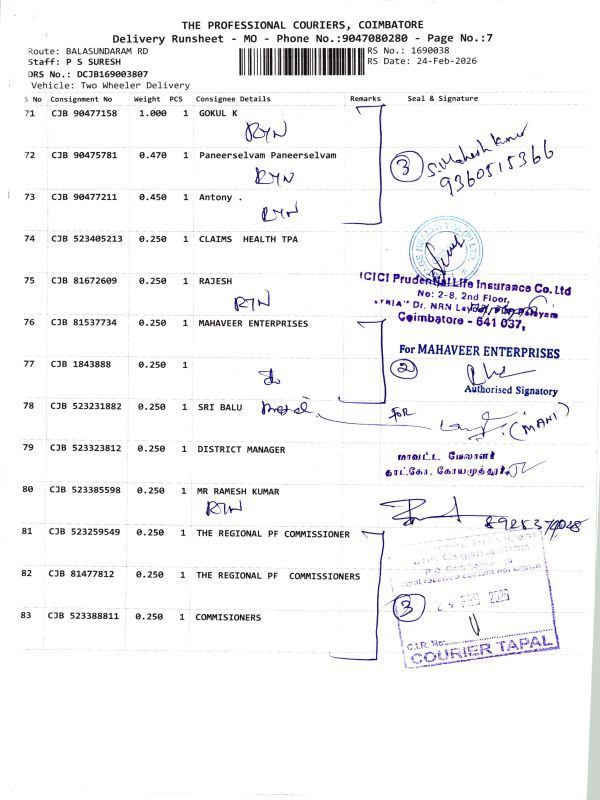 THE PROFESSIONAL COURIERS, COIMBATORE
Delivery Runsheet - MO - Phone No.:9047080280 - Page No.:7
Route: BALASUNDARAM RD
RS No.: 1690038
Staff: P S SURESH
RS Date: 24-Feb-2026
DRS No.: DCJB169003807
Vehicle: Two Wheeler Delivery
S No Consignment No Weight PCS Consignee Details Remarks Seal & Signature
71 CJB 90477158 1.000 1 GOKUL K
72 CJB 90475781 0.470 1 Paneerselvam Paneerselvam
3 S. Mahesh Kumar
9360515366
73 CJB 90477211 0.450 1 Antony .
74 CJB 523405213 0.250 1 CLAIMS HEALTH TPA
75 CJB 81672609 0.250 1 RAJESH
ICICI Prudential Life Insurance Co. Ltd
No: 2-8, 2nd Floor,
Dr. NRN Layout,
Coimbatore - 641 037,
76 CJB 81537734 0.250 1 MAHAVEER ENTERPRISES
For MAHAVEER ENTERPRISES
77 CJB 1843888 0.250 1
2
Authorised Signatory
78 CJB 523231882 0.250 1 SRI BALU
FOR
(MANI)
79 CJB 523323812 0.250 1 DISTRICT MANAGER
மாவட்ட மேலாளர்
80 CJB 523385598 0.250 1 MR RAMESH KUMAR
81 CJB 523259549 0.250 1 THE REGIONAL PF COMMISSIONER
82 CJB 81477812 0.250 1 THE REGIONAL PF COMMISSIONERS
3
24 FEB 2026
83 CJB 523388811 0.250 1 COMMISIONERS
C.I.R. No:
COURIER TAPAL